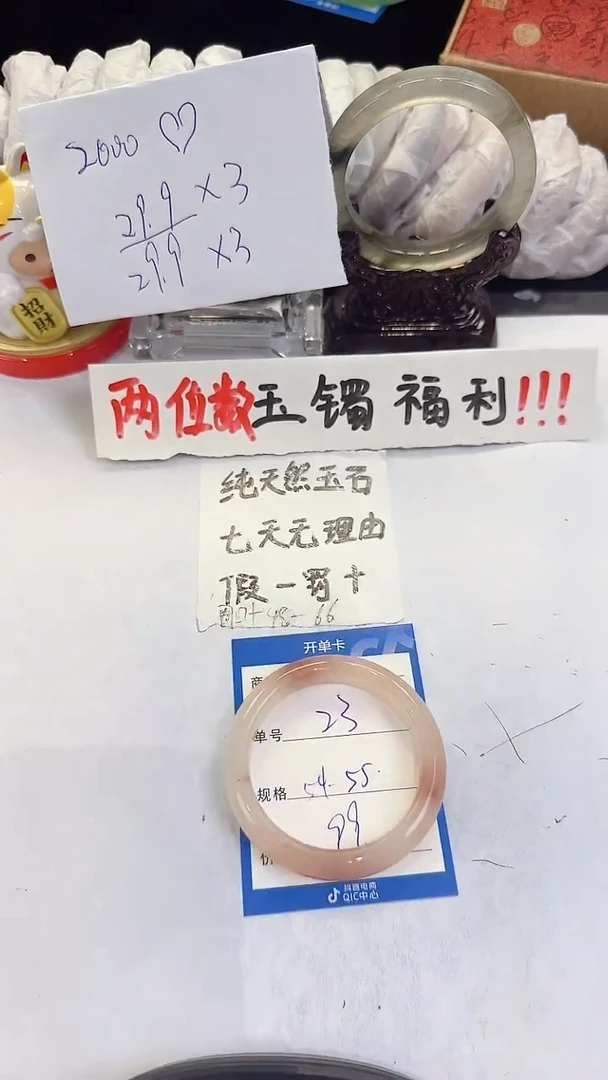 2000 ♡
29.9 ×3
29.9 ×3
招
财
两位数玉镯福利!!!
纯天然玉石
七天无理由
假一罚十
开单卡
商
单号 23
规格 54-55.
99
价
抖音电商
QIC中心